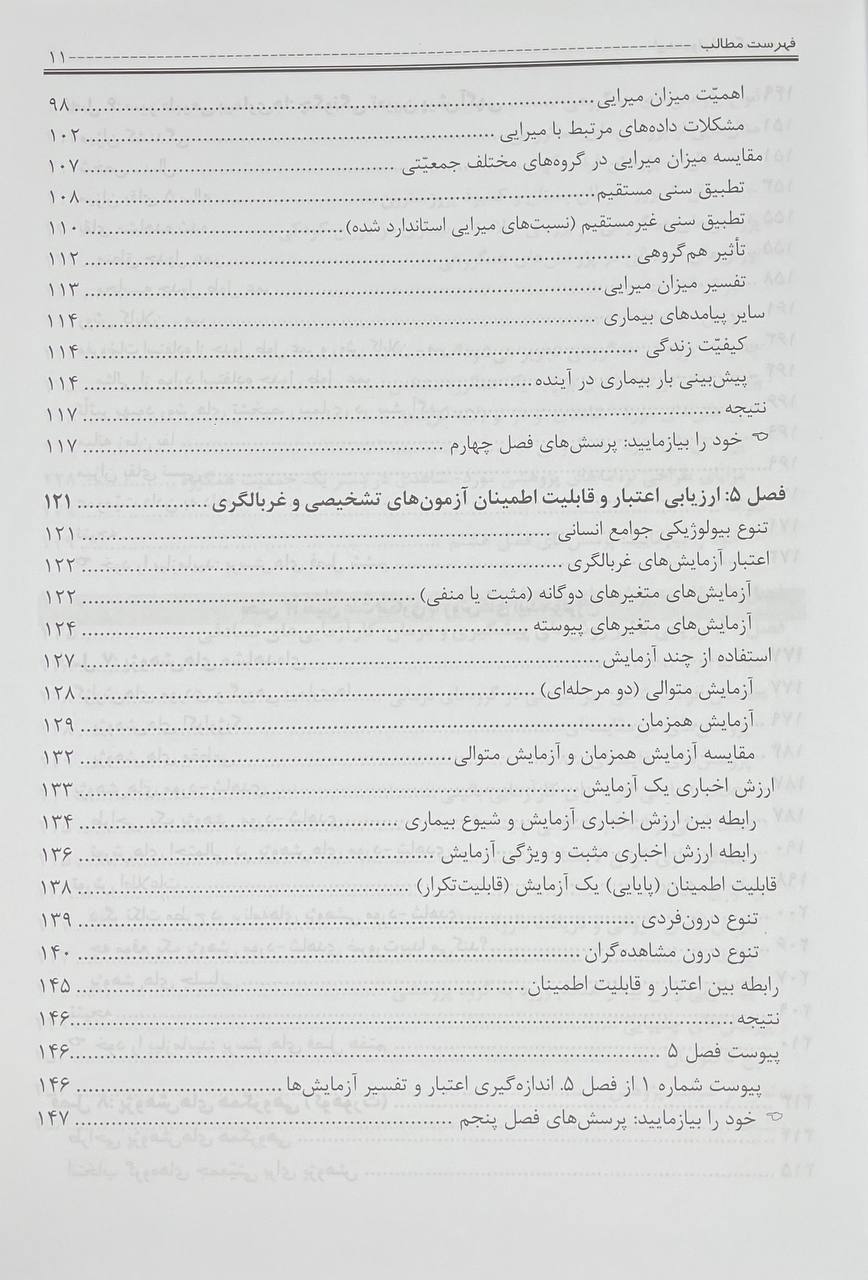 فهرست مطالب ---------- ۱۱
اهمیّت میزان میرایی .......... ۹۸
مشکلات داده‌های مرتبط با میرایی .......... ۱۰۲
مقایسه میزان میرایی در گروه‌های مختلف جمعیّتی .......... ۱۰۷
تطبیق سنی مستقیم .......... ۱۰۸
تطبیق سنی غیرمستقیم (نسبت‌های میرایی استاندارد شده) .......... ۱۱۰
تأثیر هم‌گروهی .......... ۱۱۲
تفسیر میزان میرایی .......... ۱۱۳
سایر پیامدهای بیماری .......... ۱۱۴
کیفیّت زندگی .......... ۱۱۴
پیش‌بینی بار بیماری در آینده .......... ۱۱۴
نتیجه .......... ۱۱۷
خود را بیازمایید: پرسش‌های فصل چهارم .......... ۱۱۷
فصل ۵: ارزیابی اعتبار و قابلیت اطمینان آزمون‌های تشخیصی و غربالگری .......... ۱۲۱
تنوع بیولوژیکی جوامع انسانی .......... ۱۲۱
اعتبار آزمایش‌های غربالگری .......... ۱۲۲
آزمایش‌های متغیرهای دوگانه (مثبت یا منفی) .......... ۱۲۲
آزمایش‌های متغیرهای پیوسته .......... ۱۲۴
استفاده از چند آزمایش .......... ۱۲۷
آزمایش متوالی (دو مرحله‌ای) .......... ۱۲۸
آزمایش همزمان .......... ۱۲۹
مقایسه آزمایش همزمان و آزمایش متوالی .......... ۱۳۲
ارزش اخباری یک آزمایش .......... ۱۳۳
رابطه بین ارزش اخباری آزمایش و شیوع بیماری .......... ۱۳۴
رابطه ارزش اخباری مثبت و ویژگی آزمایش .......... ۱۳۶
قابلیت اطمینان (پایایی) یک آزمایش (قابلیت‌تکرار) .......... ۱۳۸
تنوع درون‌فردی .......... ۱۳۹
تنوع درون مشاهده‌گران .......... ۱۴۰
رابطه بین اعتبار و قابلیت اطمینان .......... ۱۴۵
نتیجه .......... ۱۴۶
پیوست فصل ۵ .......... ۱۴۶
پیوست شماره ۱ از فصل ۵. اندازه‌گیری اعتبار و تفسیر آزمایش‌ها .......... ۱۴۶
خود را بیازمایید: پرسش‌های فصل پنجم .......... ۱۴۷